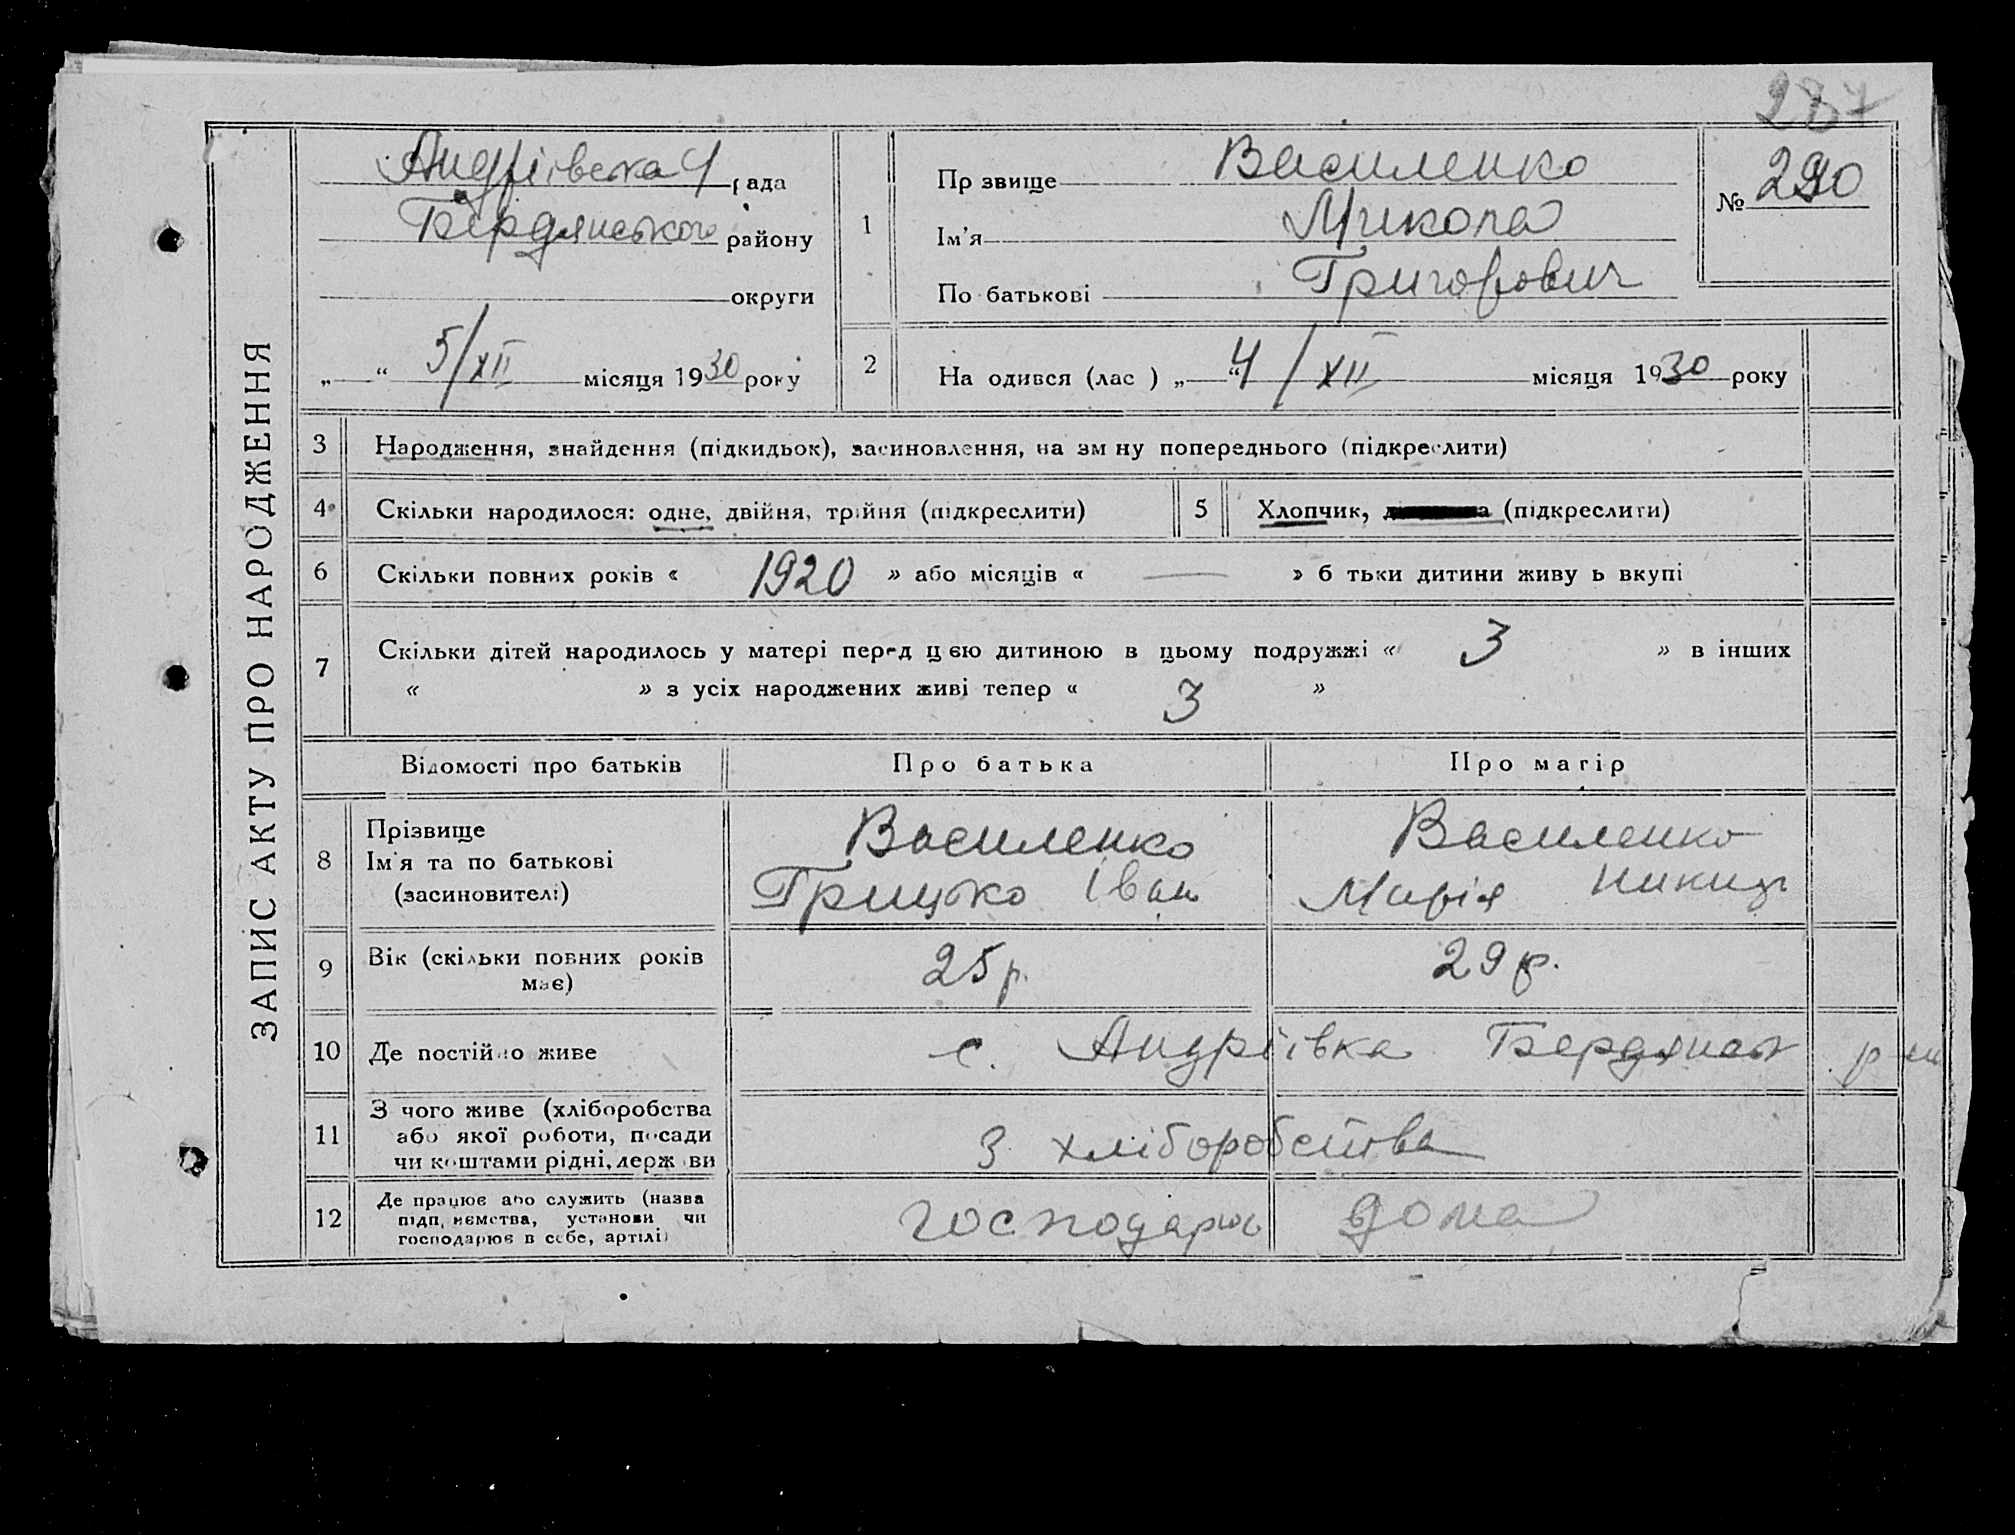 237
ЗАПИС АКТУ ПРО НАРОДЖЕННЯ
Андріївська 4 рада
Бердянського району
округи
„ “ 5/XII місяця 1930 року
1
Пр звище Василенко
Ім’я Микола
По батькові Григорович
№ 290
2
На одився (лас ) „ “ 4/XII місяця 1930 року
3 Народження, знайдення (підкидьок), засиновлення, на зм ну попереднього (підкреслити)
4 Скільки народилося: одне, двійня, трійня (підкреслити)
5 Хлопчик, (підкреслити)
6 Скільки повних років « 1920 » або місяців « — » б тьки дитини живу ь вкупі
7 Скільки дітей народилось у матері перед цею дитиною в цьому подружжі « 3 » в інших
« » з усіх народжених живі тепер « 3 »
Відомості про батьків Про батька Про матір
8 Прізвище
Ім’я та по батькові
(засиновителі)
Василенко
Грицько Іван
Василенко
Марія Никиф
9 Вік (скільки повних років
має)
25 р. 29 р.
10 Де постійно живе с. Андріївка Бердянськ р-ну
11 З чого живе (хліборобства
або якої роботи, посади
чи коштами рідні, держ ви
З хліборобства
12 Де працює або служить (назва
підп, иємства, установи чи
господарює в себе, артілі)
господарює дома